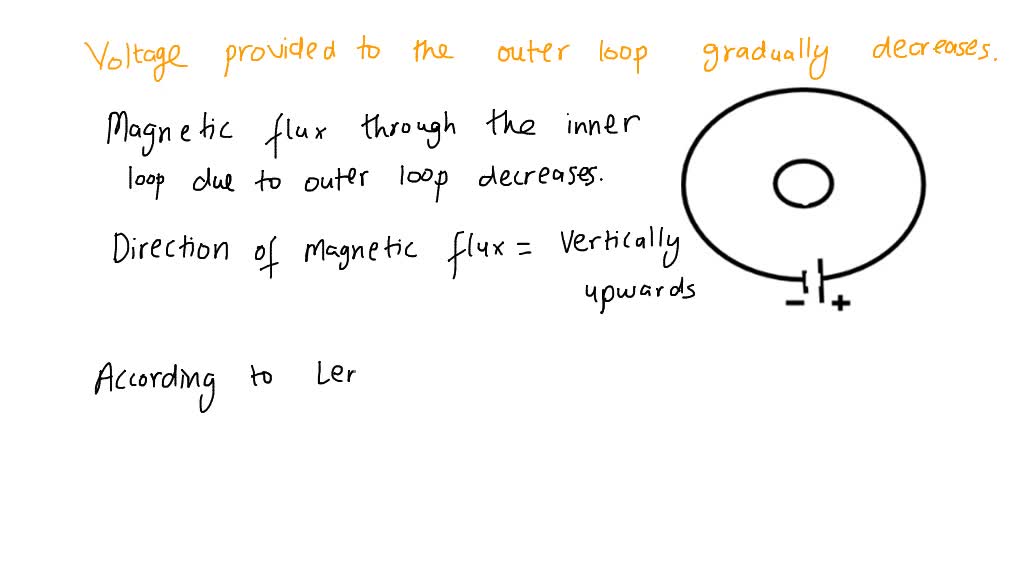 Voltage provided to the outer loop gradually decreases.
Magnetic flux through the inner
loop due to outer loop decreases.
Direction of magnetic flux = Vertically
upwards
- +
According to Ler